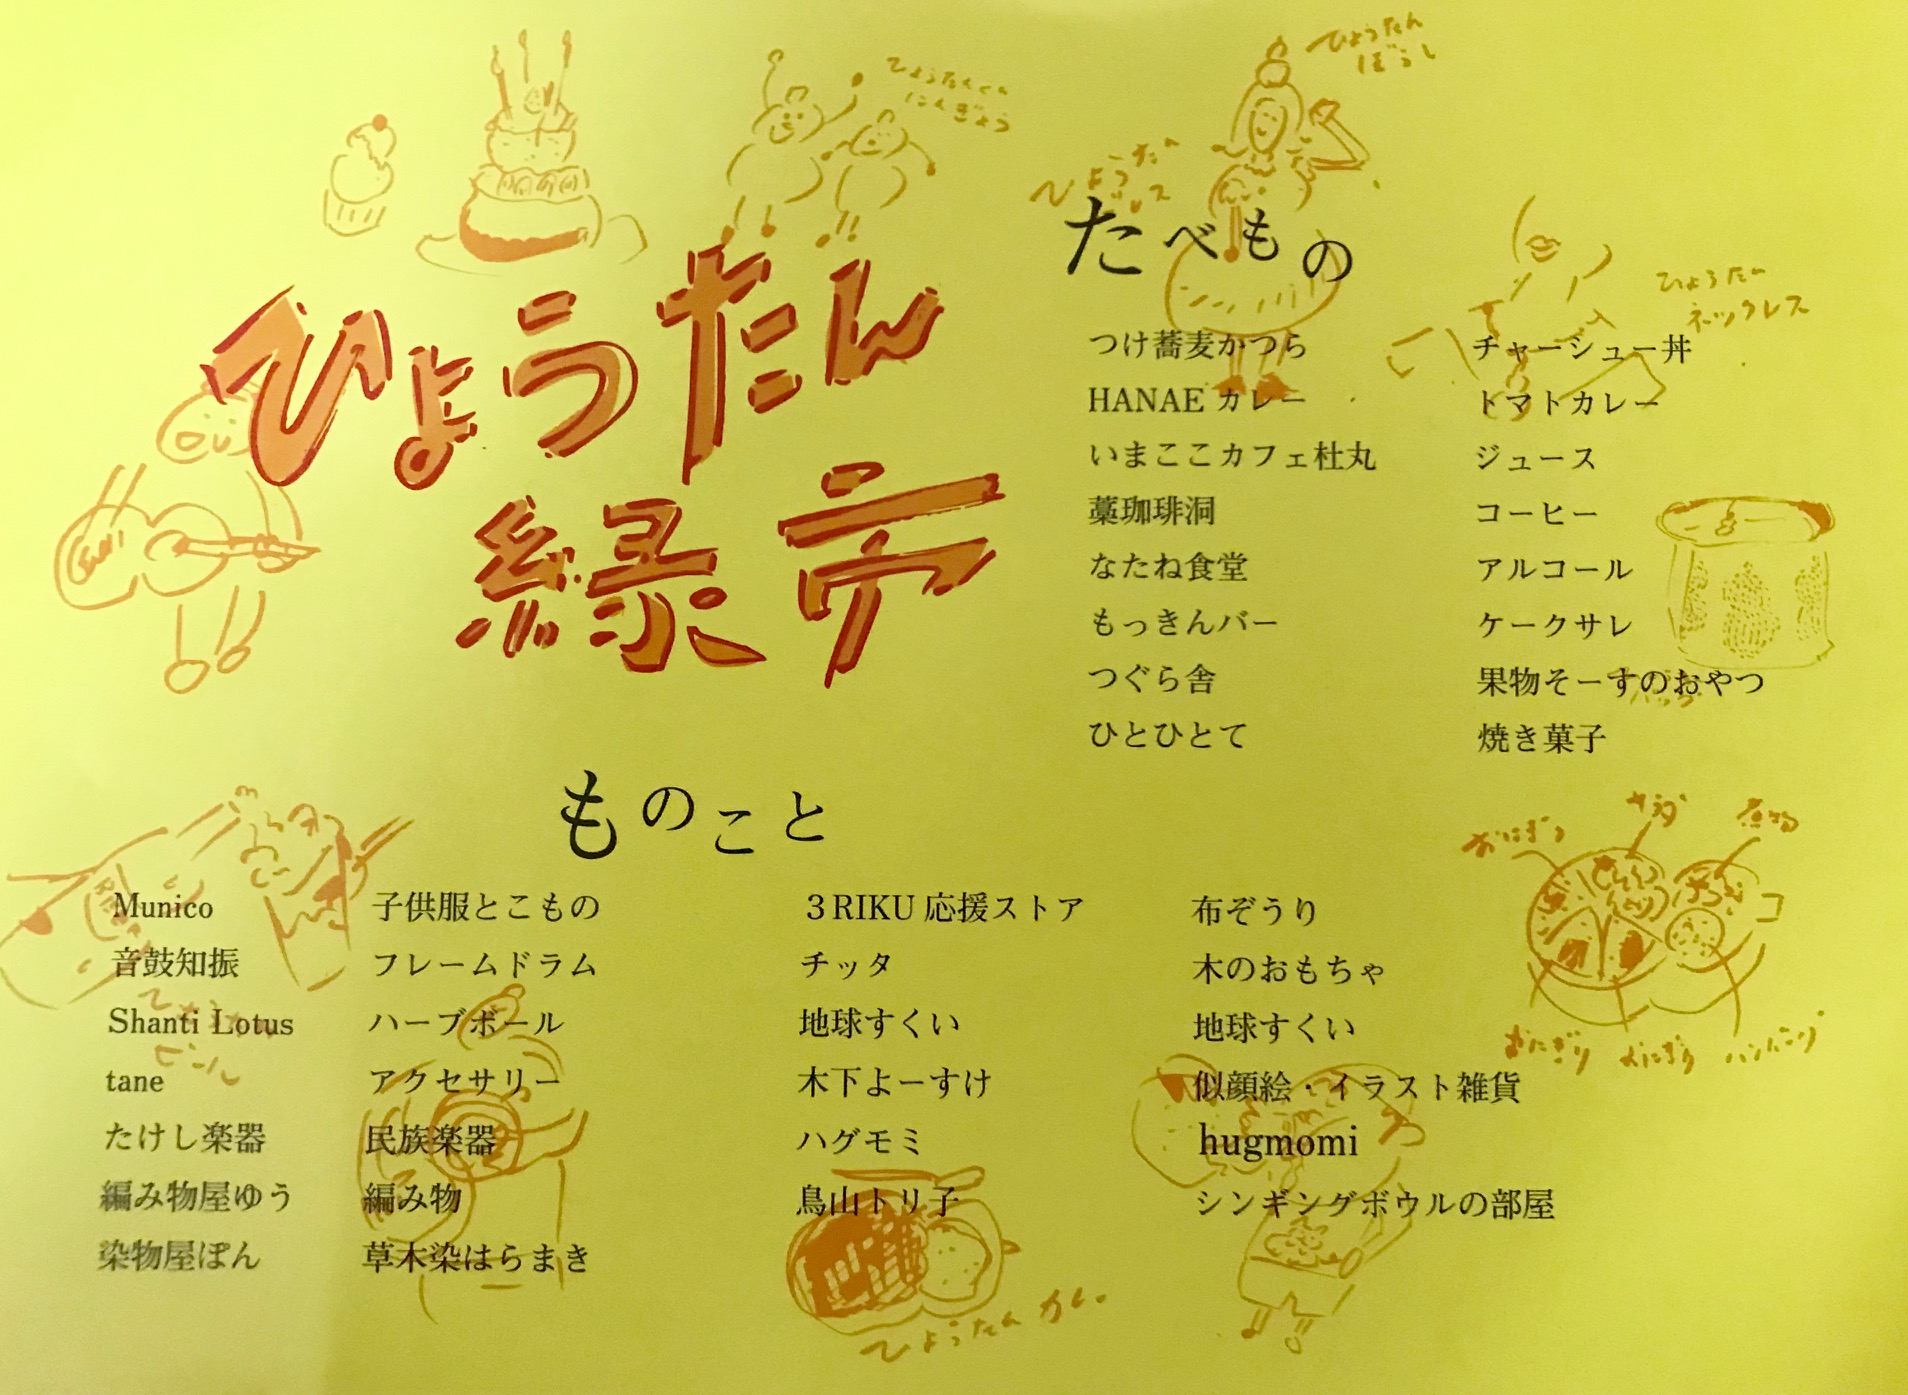 ひょうたん
にんぎょう
ひょうたん
ぼうし
ひょうたん
ひょうたん
緑市
たべもの
ひょうたん
ネックレス
つけ蕎麦かつら チャーシュー丼
HANAE カレー トマトカレー
いまここカフェ杜丸 ジュース
藁珈琲洞 コーヒー
なたね食堂 アルコール
もっきんバー ケークサレ
つぐら舎 果物そーすのおやつ
ひとひとて 焼き菓子
ものこと
おにぎり サラダ 煮物
Munico 子供服とこもの 3RIKU 応援ストア 布ぞうり
音鼓知振 フレームドラム チッタ 木のおもちゃ
Shanti Lotus ハーブボール 地球すくい 地球すくい
おにぎり おにぎり ハンバーグ
ビール
tane アクセサリー 木下よーすけ 似顔絵・イラスト雑貨
たけし楽器 民族楽器 ハグモミ hugmomi
編み物屋ゆう 編み物 鳥山トリ子 シンギングボウルの部屋
染物屋ぽん 草木染はらまき
ひょうたん カレー